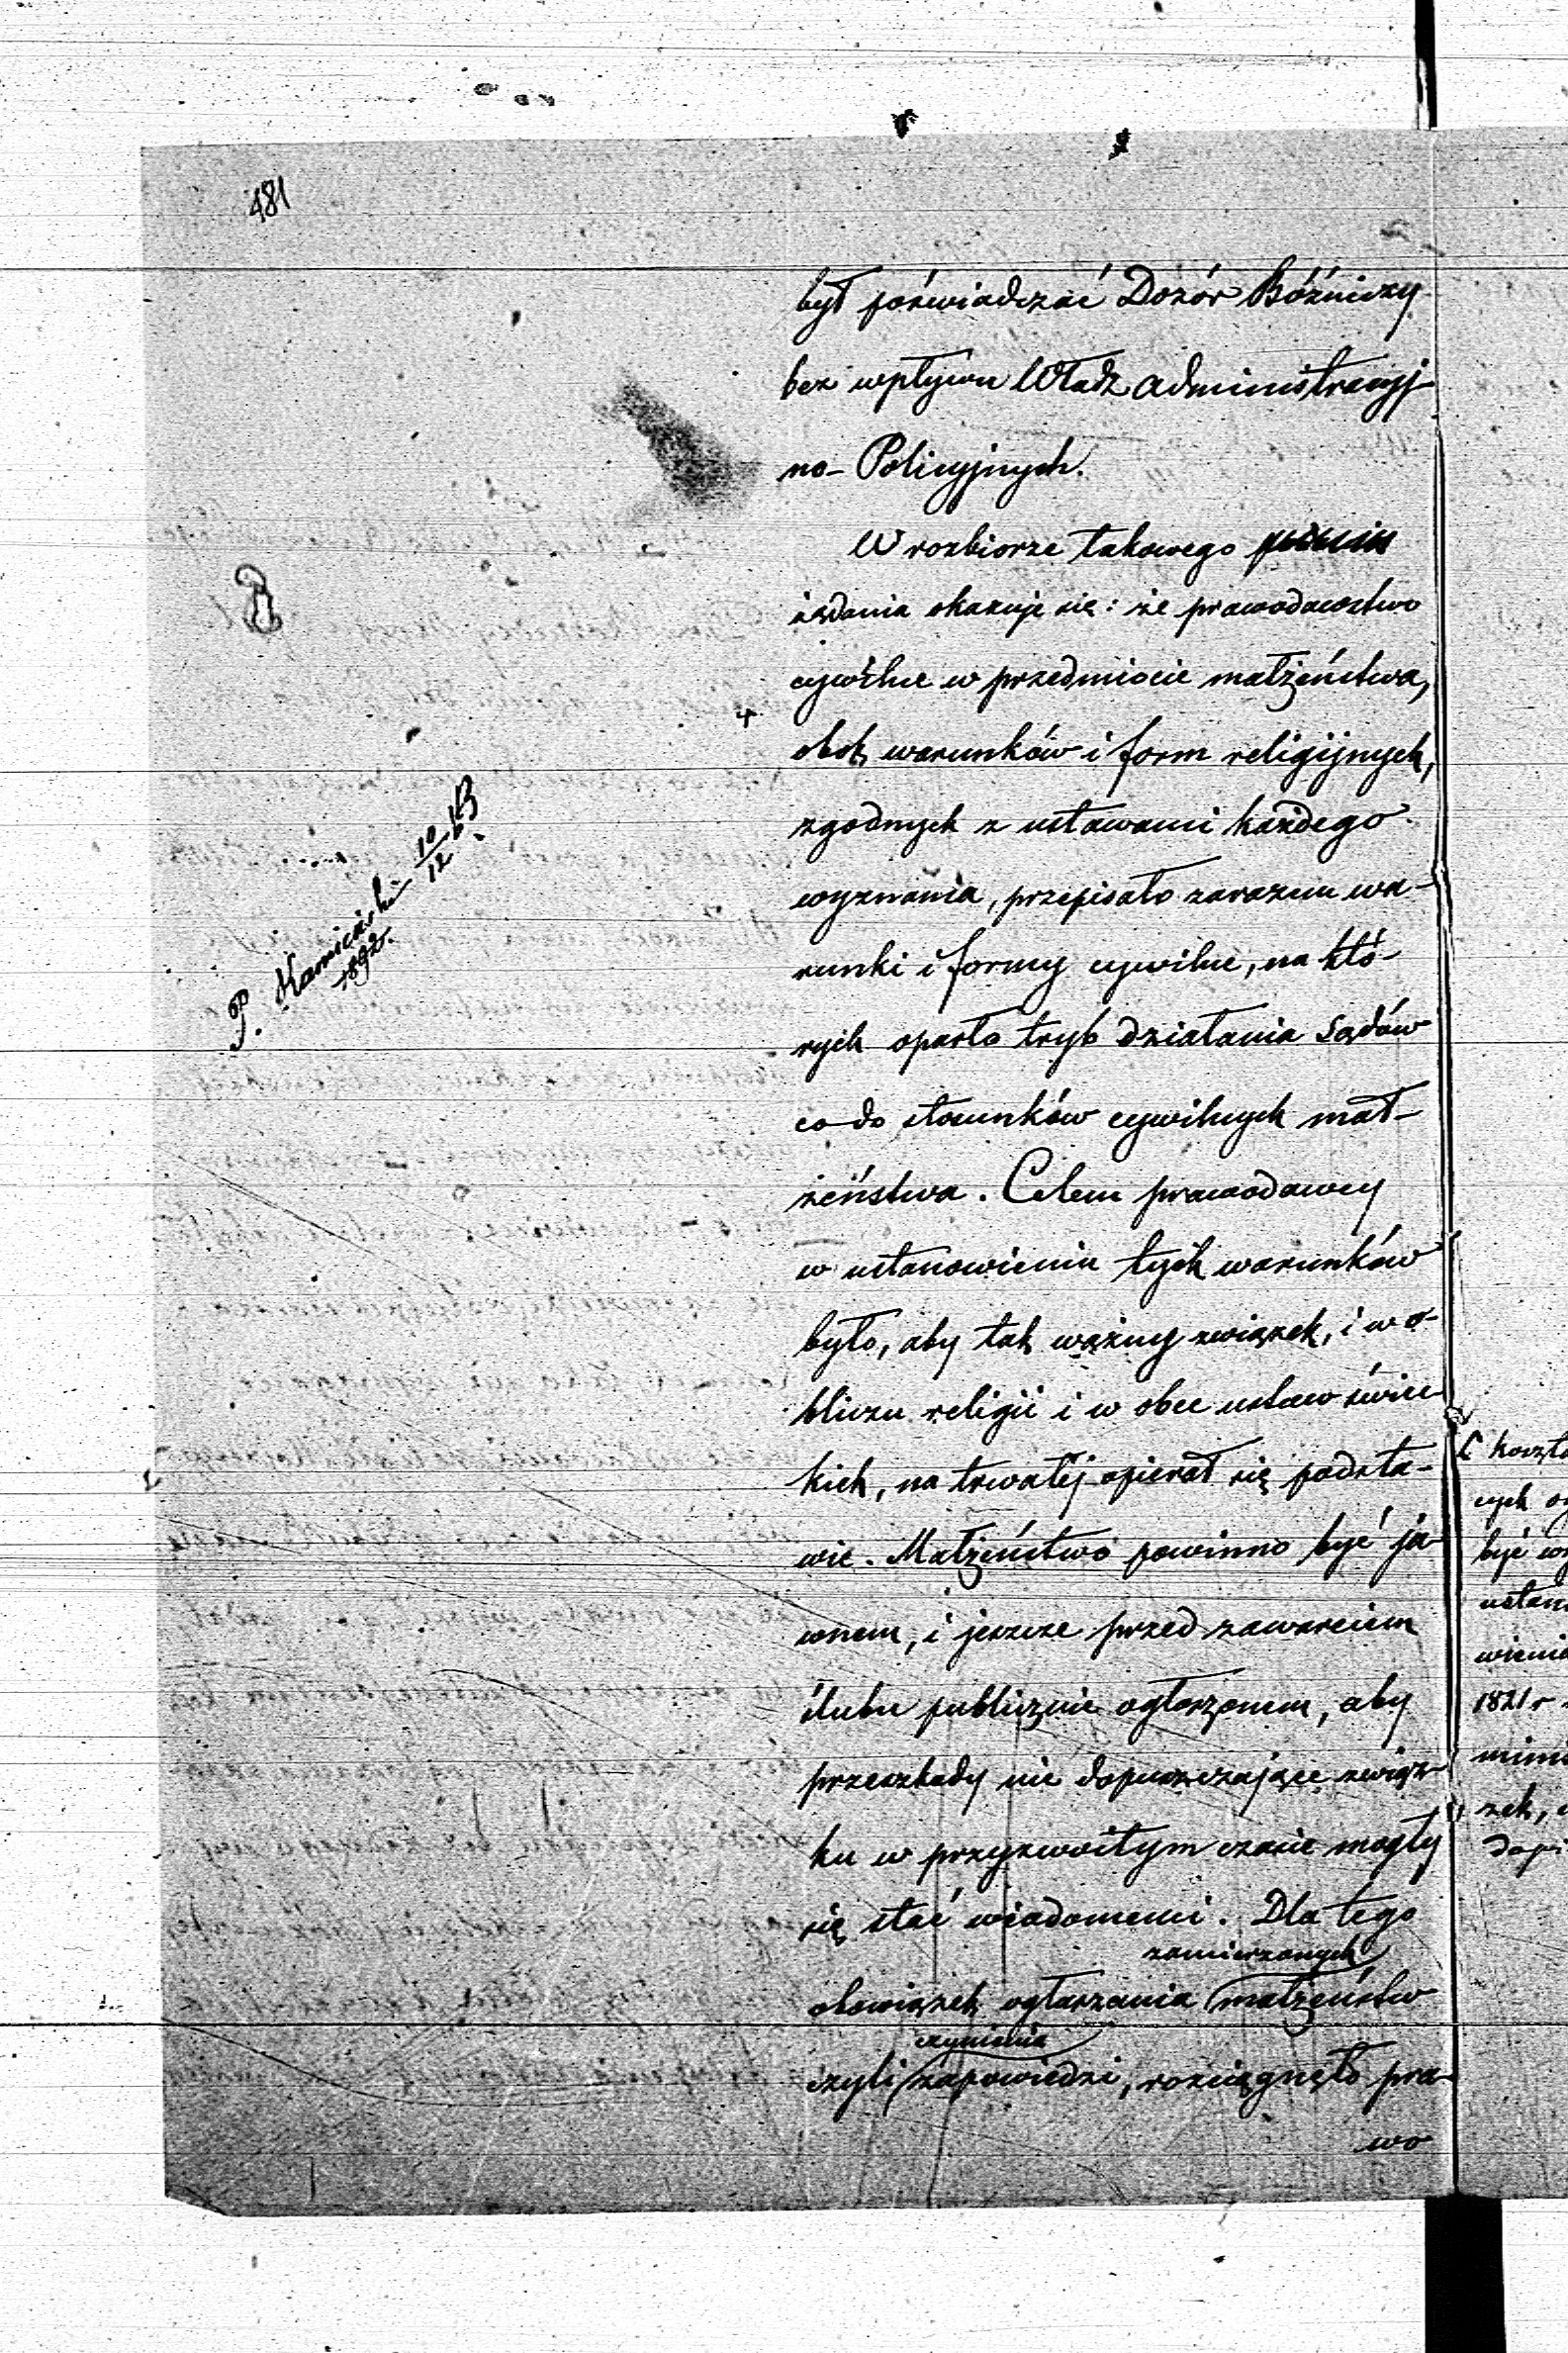 481
był poświadczać Dozór Bóźniczy
bez wpływu Władz administracyj-
no-Policyjnych.
W rozbiorze takowego
żądania okazuje się: że prawodawstwo
cywilne w przedmiocie małżeństwa,
obok warunków i form religijnych,
zgodnych z ustawami każdego
wyznania, przepisało zarazem wa-
runki i formy cywilne, na któ-
rych oparło tryb działania Sądów
co do stosunków cywilnych mał-
żeństwa. Celem prawodawcy
w ustanowieniu tych warunków
było, aby tak ważny związek, i w o-
bliczu religii i w obec ustaw świec-
kich, na trwałéj opierał się podsta-
wie. Małżeństwo powinno być ja-
wnem, i jeszcze przed zawarciem
ślubu publicznie ogłoszonem, aby
przeszkody nie dopuszczające związ-
ku w przyzwoitym czasie mogły
się stać wiadomemi. Dla tego
zamierzonych
obowiązek ogłaszania małżeństw
czynienia
czyli zapowiedzi, rozciągnęło pra-
wo
P. Kamieński 10/12
1892.
być
1821 r